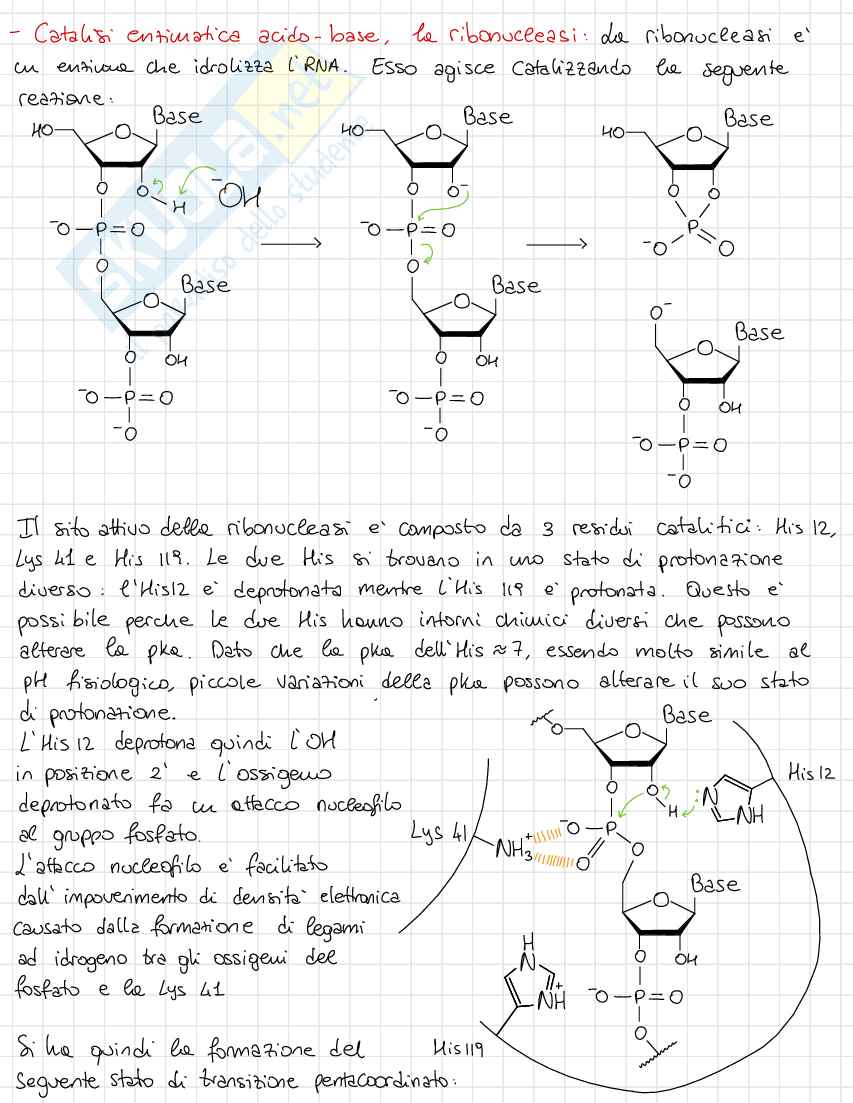 - Catalisi enzimatica acido-base, la ribonucleasi: La ribonucleasi è
un enzima che idrolizza l'RNA. Esso agisce Catalizzando la seguente
reazione:
Base
HO
O
O
O
H
⁻OH
⁻O-P=O
O
Base
O
O
OH
⁻O-P=O
⁻O
Base
HO
O
O
O⁻
⁻O-P=O
O
Base
O
O
OH
⁻O-P=O
⁻O
Base
HO
O
O
O
P
⁻O
O
O⁻
Base
O
O
OH
⁻O-P=O
⁻O
SKUOLA.net
il paradiso dello studente
Il sito attivo della ribonucleasi è composto da 3 residui catalitici: His 12,
Lys 41 e His 119. Le due His si trovano in uno stato di protonazione
diverso: l'His12 è deprotonata mentre l'His 119 è protonata. Questo è
possibile perche le due His hanno intorni chimici diversi che possono
alterare la pka. Dato che la pka dell'His ≈ 7, essendo molto simile al
pH fisiologico, piccole variazioni della pka possono alterare il suo stato
di protonazione.
L'His 12 deprotona quindi l'OH
in posizione 2' e l'ossigeno
deprotonato fa un attacco nucleofilo
al gruppo fosfato.
L'attacco nucleofilo è facilitato
dall'impoverimento di densità elettronica
causato dalla formazione di legami
ad idrogeno tra gli ossigeni del
fosfato e la Lys 41
Si ha quindi la formazione del
seguente stato di transizione pentacoordinato:
Base
O
O
O
O
H
N
NH
His 12
Lys 41
NH₃⁺
⁻O
P
O
O
Base
O
O
OH
⁻O-P=O
O
H
N
NH
+
His 119